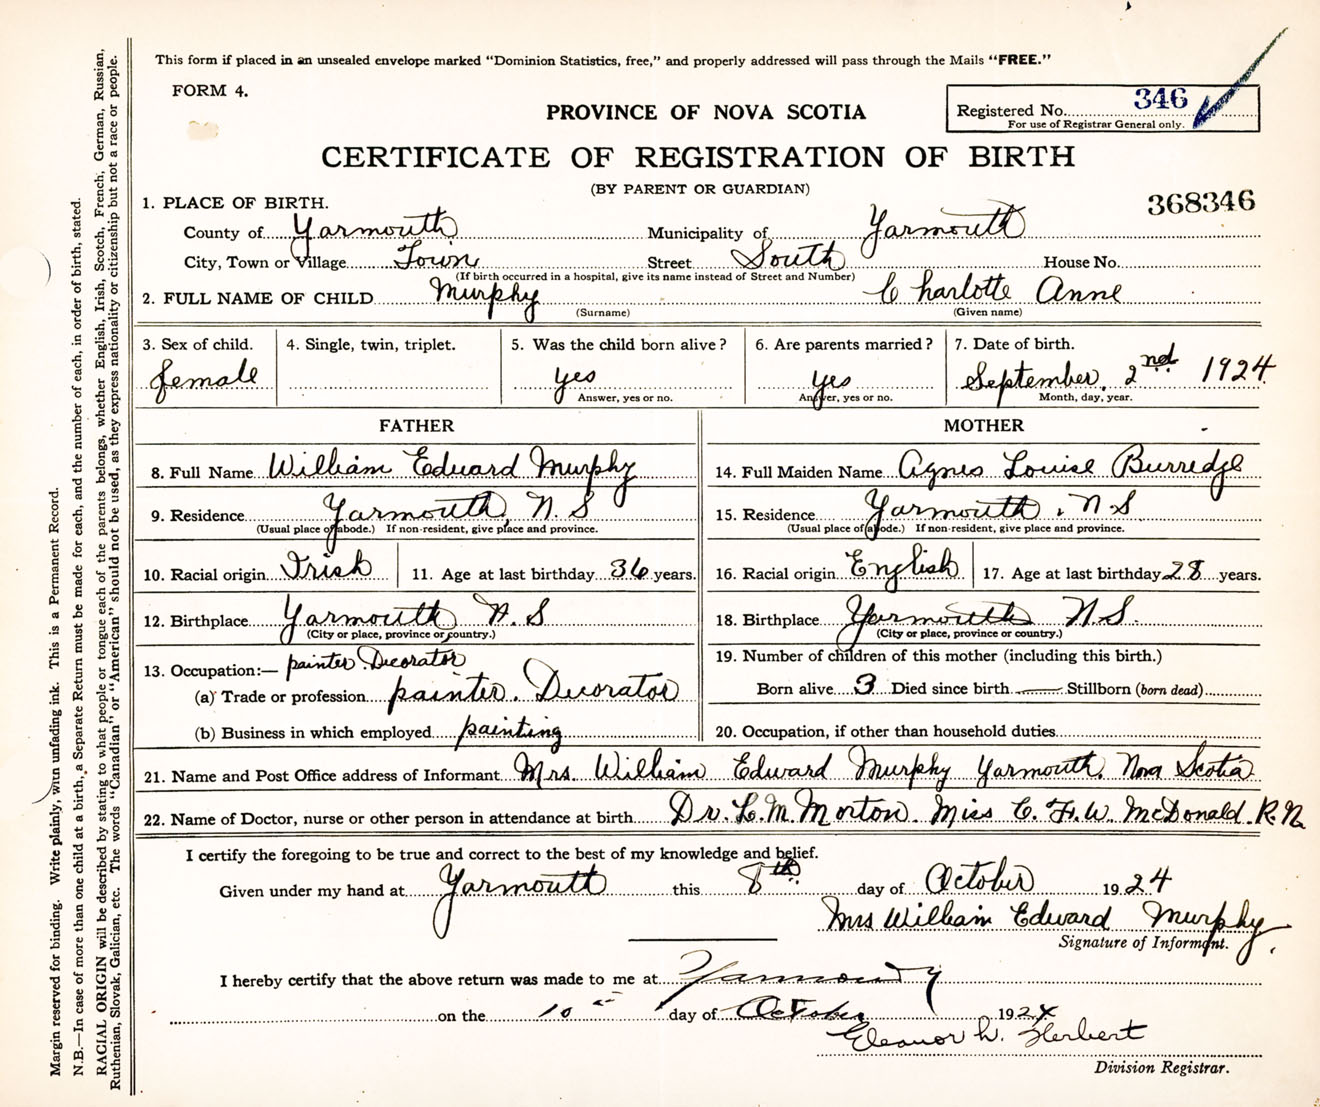 This form if placed in an unsealed envelope marked "Dominion Statistics, free," and properly addressed will pass through the Mails "FREE."
FORM 4.
PROVINCE OF NOVA SCOTIA
Registered No. 346
For use of Registrar General only.
CERTIFICATE OF REGISTRATION OF BIRTH
(BY PARENT OR GUARDIAN)
368346
1. PLACE OF BIRTH.
County of Yarmouth Municipality of Yarmouth
City, Town or Village Town Street South House No.
(If birth occurred in a hospital, give its name instead of Street and Number)
2. FULL NAME OF CHILD Murphy Charlotte Anne
(Surname) (Given name)
3. Sex of child. 4. Single, twin, triplet. 5. Was the child born alive? 6. Are parents married? 7. Date of birth.
female yes yes September 2nd 1924
Answer, yes or no. Answer, yes or no. Month, day, year.
FATHER MOTHER
8. Full Name William Edward Murphy 14. Full Maiden Name Agnes Louise Burredge
9. Residence Yarmouth, N.S 15. Residence Yarmouth, N.S
(Usual place of abode.) If non-resident, give place and province. (Usual place of abode.) If non-resident, give place and province.
10. Racial origin Irish 11. Age at last birthday 36 years. 16. Racial origin English 17. Age at last birthday 28 years.
12. Birthplace Yarmouth N.S 18. Birthplace Yarmouth N.S.
(City or place, province or country.) (City or place, province or country.)
13. Occupation:— painter Decorator 19. Number of children of this mother (including this birth.)
(a) Trade or profession painter. Decorator Born alive 3 Died since birth — Stillborn (born dead)
(b) Business in which employed painting 20. Occupation, if other than household duties
21. Name and Post Office address of Informant Mrs. William Edward Murphy Yarmouth, Nova Scotia
22. Name of Doctor, nurse or other person in attendance at birth Dr. L.M. Morton. Miss C. F. W. McDonald. R.N.
I certify the foregoing to be true and correct to the best of my knowledge and belief.
Given under my hand at Yarmouth this 8th day of October 1924
Mrs William Edward Murphy
Signature of Informant.
I hereby certify that the above return was made to me at Yarmouth
on the 10th day of October 1924
Eleanor W. Herbert
Division Registrar.
Margin reserved for binding. Write plainly, with unfading ink. This is a Permanent Record.
N.B.—In case of more than one child at a birth, a Separate Return must be made for each, and the number of each, in order of birth, stated.
RACIAL ORIGIN will be described by stating to what people or tongue each of the parents belongs, whether English, Irish, Scotch, French, German, Russian,
Ruthenian, Slovak, Galician, etc. The words "Canadian" or "American" should not be used, as they express nationality or citizenship but not a race or people.